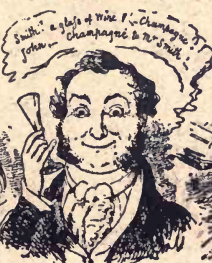 Smith! a glass of Wine?—Champagne?
John— Champagne to Mr Smith!